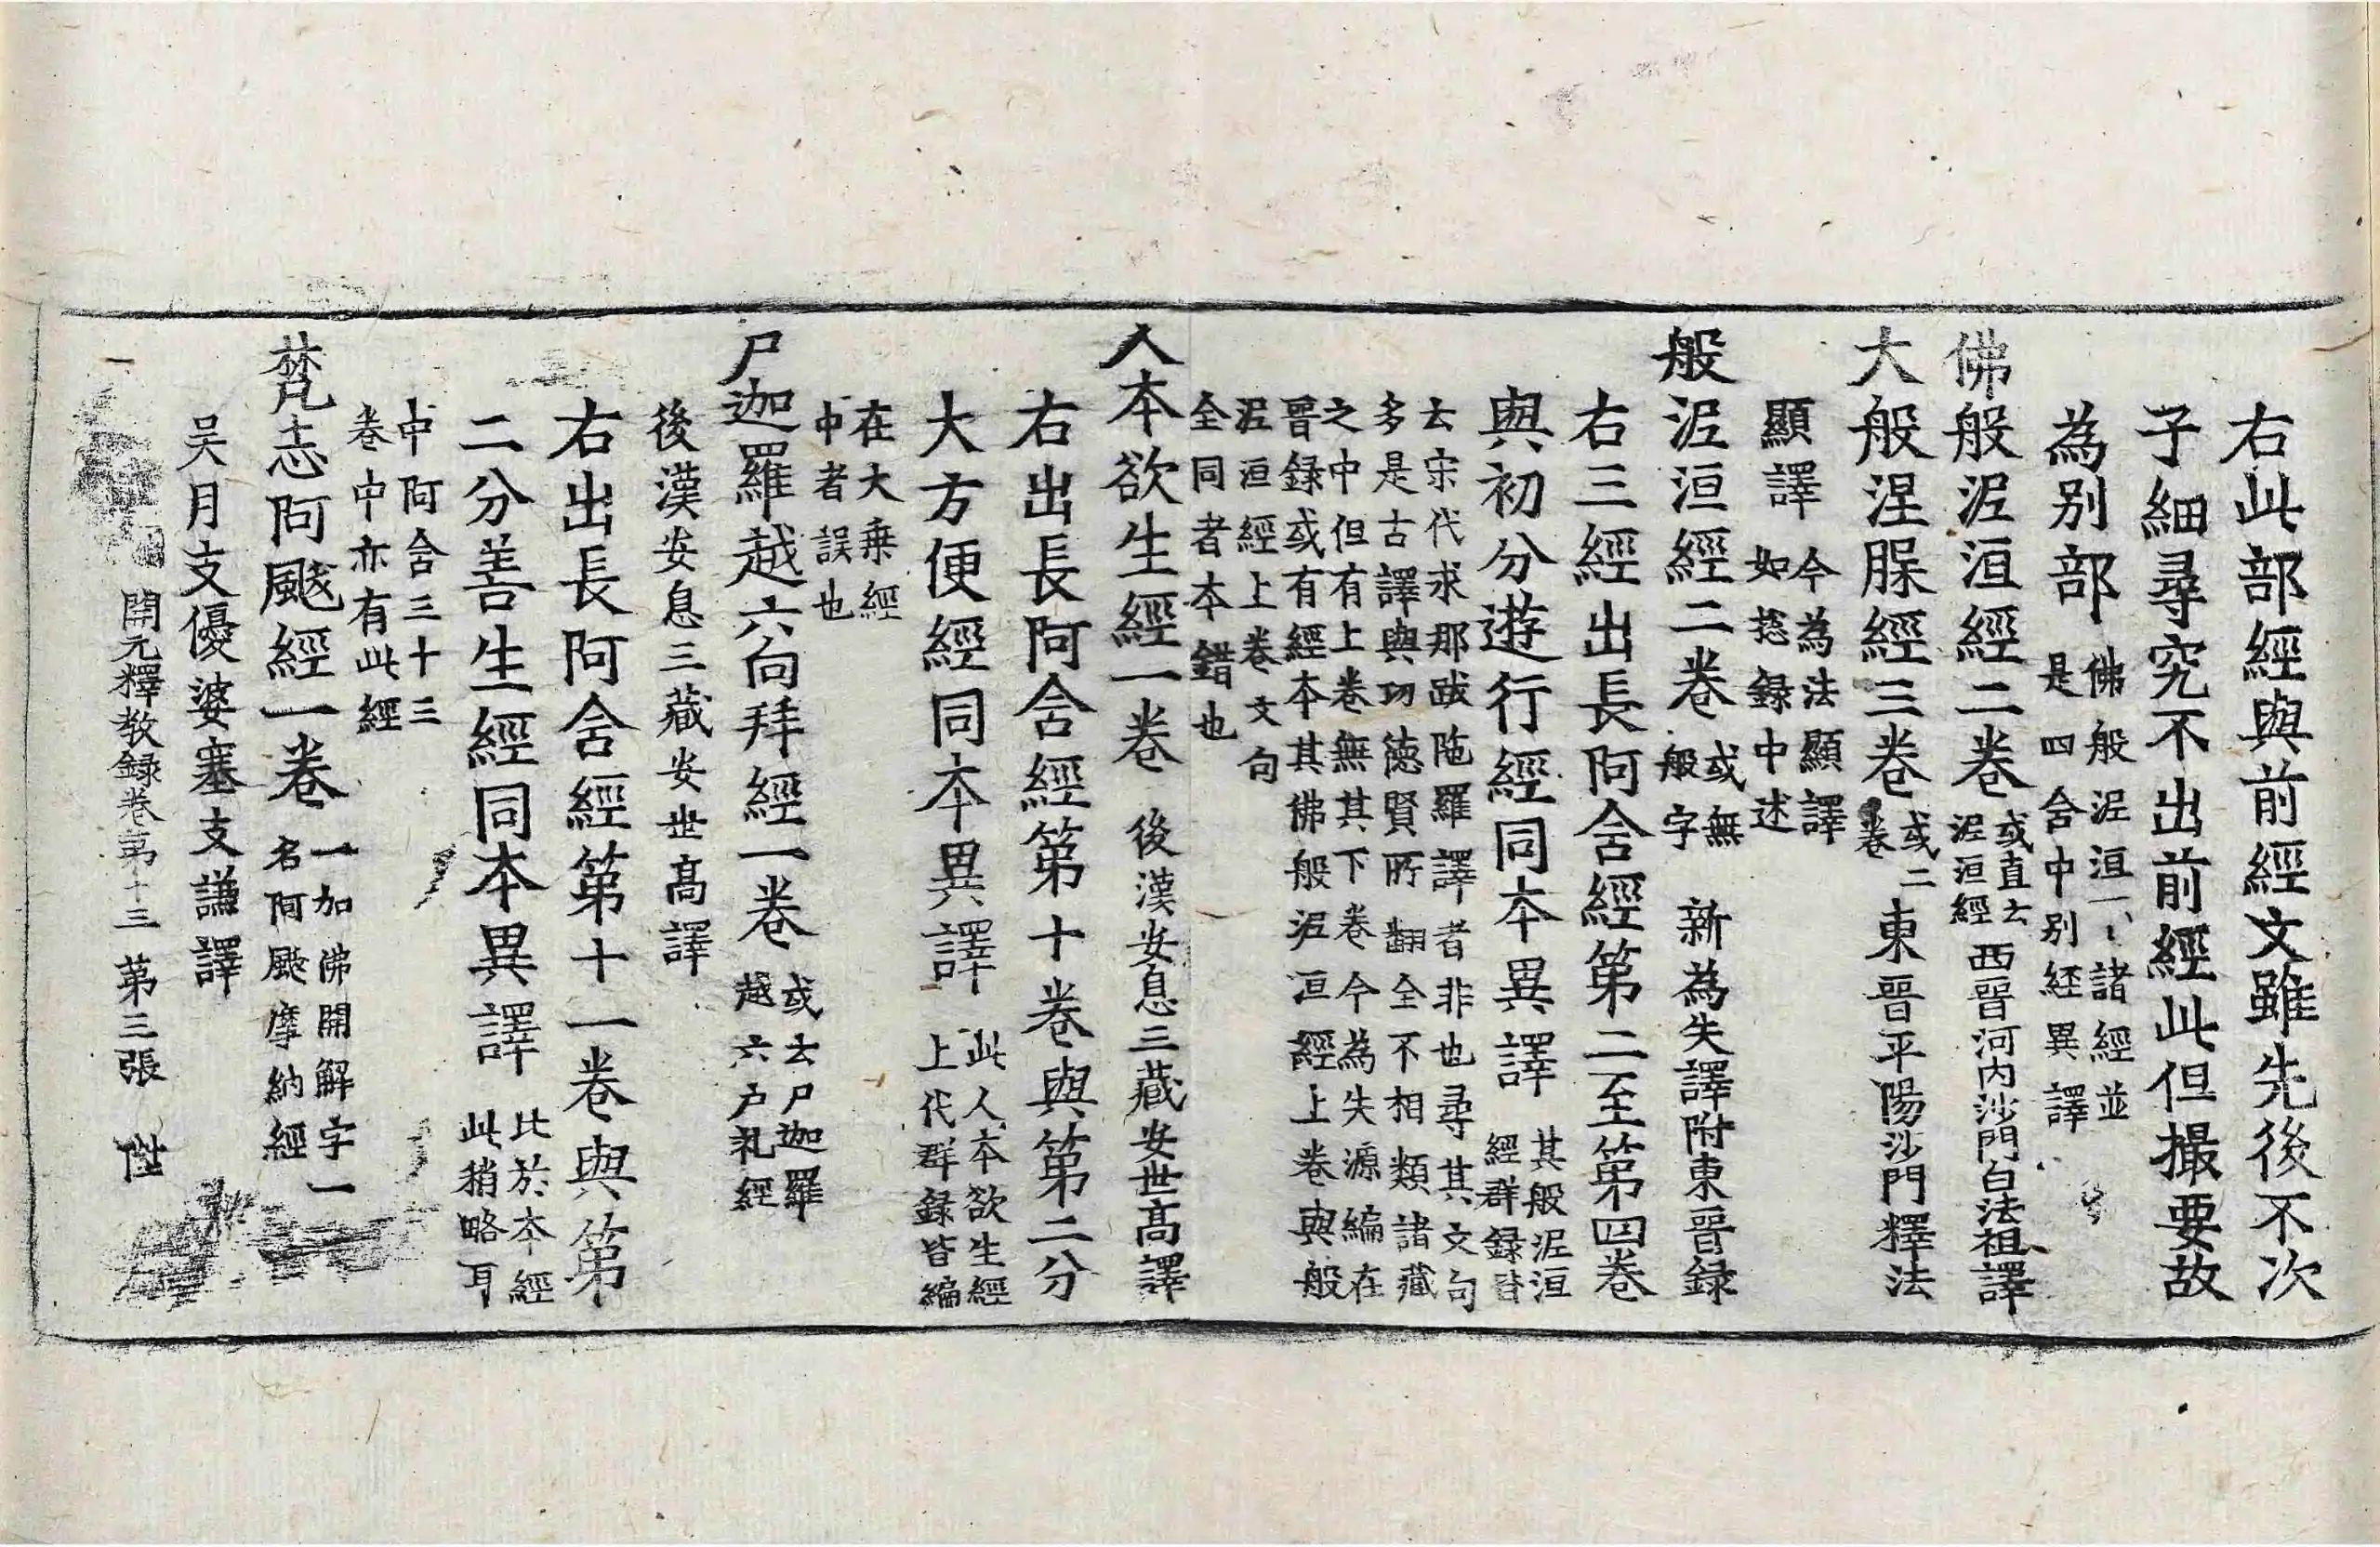 右此部經與前經文雖先後不次
子細尋究不出前經此但撮要故
為別部佛般泥洹一〻諸經並是四含中別経異譯
佛般泥洹經二卷或直云泥洹經西晉河內沙門白法祖譯
大般涅脵經三卷或二卷東晉平陽沙門釋法
顯譯今為法顯譯如捴録中述
般泥洹經二卷或無般字新為失譯附東晉録
右三經出長阿含經第二至第四卷
與初分遊行經同本異譯其般泥洹經群録皆
云宋代求那跋陁羅譯者非也尋其文句
多是古譯與功德賢所翻全不相類諸藏
之中但有上卷無其下卷今為失源編在
晉録或有經本其佛般泥洹經上卷與般
泥洹經上卷文句
全同者本錯也
人本欲生經一卷後漢安息三藏安世高譯
右出長阿含經第十卷與第二分
大方便經同本異譯此人本欲生經上代群録皆編
在大乗經
中者誤也
尸迦羅越六向拜經一卷或云尸迦羅越六向礼經
後漢安息三藏安世高譯
右出長阿含經第十一卷與第
二分善生經同本異譯比於本經此稍略耳
中阿含三十三
卷中亦有此經
梵志阿颰經一卷一加佛開解字一名阿颰摩納經
吴月支優婆塞支謙譯
開元釋教録卷第十三 第三張